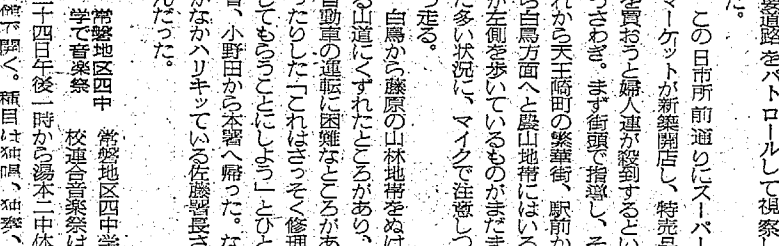 装道路をパトロールして視察し
た。
この日市所前通りにスーパー
マーケットが新築開店し、特売品
を買おうと婦人連が殺到するとい
うさわぎ。まず街頭で指導し、そ
れから天王崎町の繁華街、駅前か
ら白鳥方面へと農山地帯にはいる
が左側を歩いているものがまだま
だ多い状況に、マイクで注意しつ
つ走る。
白鳥から藤原の山林地帯をぬけ
る山道にくずれたところがあり、
自動車の運転に困難なところがあ
ったりした「これはさっそく修理
してもらうことにしよう」とひと
、小野田から本署へ帰った。な
かなかハリキッている佐藤署長さ
んだった。
常磐地区四中
学で音楽祭
常磐地区四中学
校連合音楽祭は
二十四日午後一時から湯本二中体
で開く。種目は独唱、独奏、